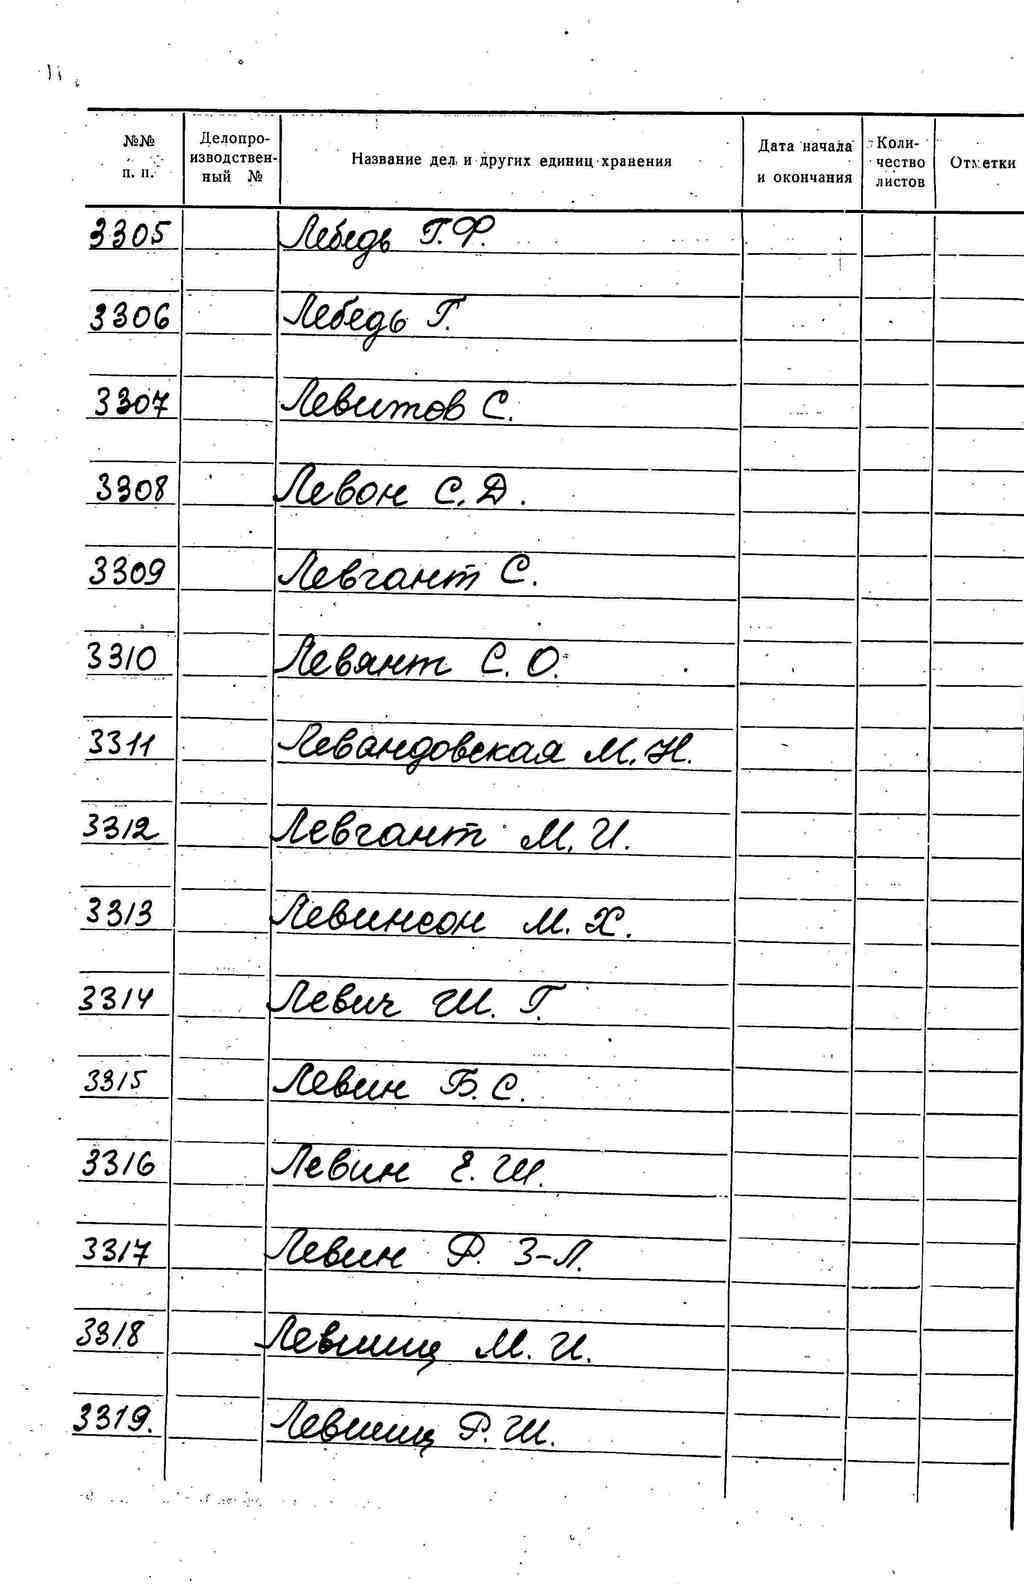 №№ п. п. Делопро- изводствен- ный № Название дел и других единиц хранения Дата начала и окончания Коли- чество листов Отметки
3305 Лебедь Г.Ф.
3306 Лебедь Г.
3307 Левитов С.
3308 Левон С.Д.
3309 Левгант С.
3310 Левянт С. О.
3311 Левандовская М.Н.
3312 Левгант М.И.
3313 Левинсон М. Х.
3314 Левич Ш. Г.
3315 Левин Б.С.
3316 Левин Е. Ш.
3317 Левин Ф. З-Л.
3318 Левшиц М. И.
3319. Левшиц Р. Ш.